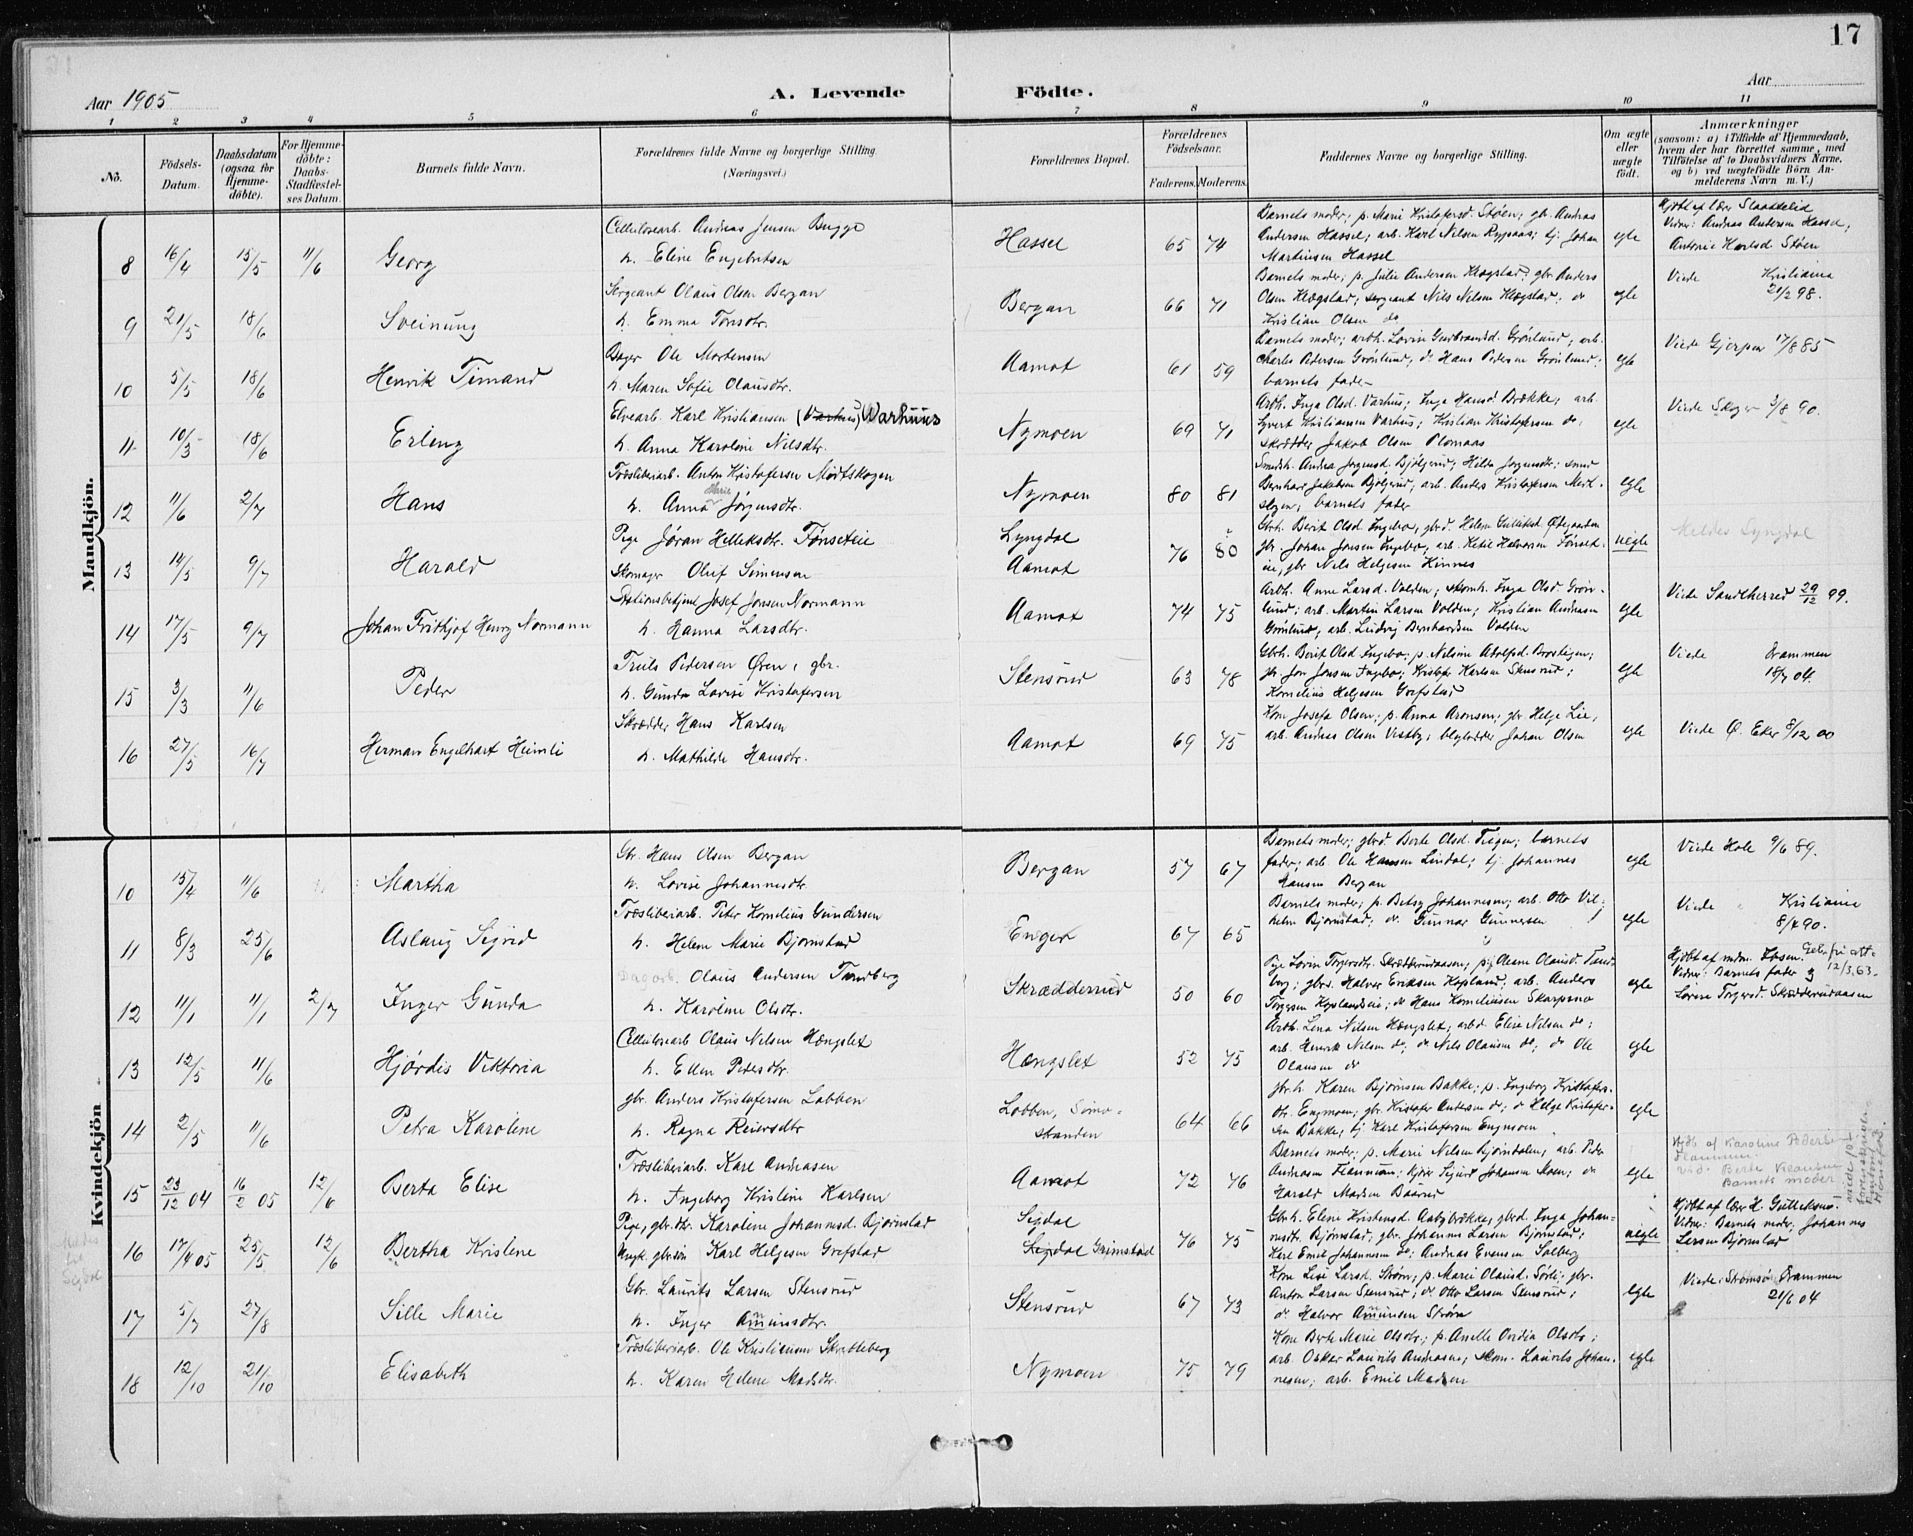 17
Aar 1905
A. Levende Födte.
Aar
1 2 3 4 5 6 7 8 9 10 11
No.
Födsels-Datum.
Daabsdatum (ogsaa for Hjemme-döbte).
For Hjemme-döbte: Daabs-Stadfæstel-ses Datum.
Barnets fulde Navn.
Forældrenes fulde Navne og borgerlige Stilling. (Næringsvei.)
Forældrenes Bopæl.
Forældrenes Födselsaar.
Faderens. Moderens.
Faddernes Navne og borgerlige Stilling.
Om ægte eller uægte födt.
Anmærkninger (saasom: a) i Tilfælde af Hjemmedaab, hvem der har forrettet samme, med Tilföielse af to Daabsvidners Navne. og b) ved uægtefödte Börn An-melderens Navn m. V.)
Mandkjön.
8 16/4 15/5 11/6 Georg
Cellulosearb. Andreas Jensen Bugge
h. Eline Engebretsen
Hassel 65 74
Barnets moder; p. Marie Kristofersd. Støen; gb. Andreas
Andersen Hassel; arb. Karl Nilsen Ryghaas; tj. Johan
Martinsen Hassel
egte
Hjdbt af lærer Slaattelid
Vidner: Andreas Andersen Hassel,
Antonie Karlsd Støen
9 21/5 18/6 Sveinung
Sergeant Olaus Olsen Bergan
h. Emma Tonsdtr.
Bergan 66 71
Barnets moder; p. Julie Andersen Hægstad; gbr Anders
Olsen Hægstad; sergeant Nils Nilsen Hægstad; do
Kristian Olsen do
egte
Viede Kristiania
21/2 98.
10 5/5 18/6 Henrik Timand
Bager Ole Mortensen
h. Maren Sofie Olausdtr.
Aamot 61 59
Barnets moder; arbh. Lovise Gulbrandsd. Grønlund; arb.
Charles Pedersen Grønlund; do Hans Pedersen Grønlund;
barnets fader
egte
Viede Gjerpen 17/8 85
11 10/3 18/6 Erling
Elvearb. Karl Kristiansen (Varhus) Warhuus
h. Anna Karoline Nilsdtr.
Nymoen 69 71
Arbh. Inga Olsd. Varhus; Inga Hansd Brække; arb.
Syvert Kristiansen Varhus; Kristian Kristofersen do;
skrædder Jakob Olsen Plomaas
egte
Viede Skoger 3/8 90.
12 11/6 2/7 Hans
Træsliberiarb. Anton Kristofersen Mørtskogen
h. Anna Marie Jørgensdtr.
Nymoen 80 81
Smedh. Andrea Jørgensd. Bjølgerud; Hilda Jørgensdtr; smed
Bernhard Jakobsen Bjølgerud; arb. Anders Kristofersen Mørt-
skogen; barnets fader
egte
13 14/5 9/7 Harald
Pige Jøran Helleksdtr. Tønseteie
Skomager Oluf Simensen
Lyngdal
Aamot 76 80
Gbrh. Berit Olsd. Ingebo; gbrd. Helene Gulliksd Ødegaarden
gbr. Johan Jonsen Ingebo; arb. Ketil Halvorsen Tønset-
eie, gbr Nils Helgesen Kinnes
uegte
Meldes Lyngdal
14 17/5 9/7 Johan Frithjof Henry Normann
Stationsbetjent Josef Jonsen Normann
h. Hanna Larsdtr.
Aamot 74 75
Arbh. Anne Larsd. Volden; skomh. Inga Olsd. Grøn-
lund; arb. Martin Larsen Volden; Kristian Andreasen
Grønlund; arb. Ludvig Bernhardsen Volden
egte
Viede Sandeherred 29/12 99.
15 3/3 11/6 Peder
Truls Pedersen Øren, gbr.
h. Gunda Lovise Kristofersen
Stensrud 63 78
Gbrh. Berit Olsd Ingebo; p. Nelsine Adolfsd Brostigen;
gbr. Jon Jonsen Ingebo; Kristofer Karlsen Stensrud;
Kornelius Helgesen Grefstad
egte
Viede Drammen
18/7 04.
16 27/5 16/7 Herman Engelhart Heimli
Skrædder Hans Karlsen
h. Mathilde Hansdtr.
Aamot 69 75
Kone Josefa Olsen; p. Anna Aronsen; gbr. Helge Lie;
arb. Andreas Olsen Vestby; Johan Olsen
egte
Viede Ø. Eker 8/12 00
Kvindekjön
10 15/4 11/6 Martha
Gbr. Hans Olsen Bergan
h. Lovise Johannesdtr.
Bergan 57 67
Barnets moder; gbrd. Berte Olsd. Teigen; barnets
fader; arb. Ole Hansen Lindal; tj. Johannes
Hansen Bergan
egte
Viede Hole 9/6 89.
11 8/3 25/6 Aslaug Sigrid
Træsliberiarb. Peter Kornelius Gundersen
h. Helene Marie Bjørnstad
Enger 67 65
Barnets moder; p. Betsy Johannesen; arb. Otto Vil-
helm Bjørnstad; do. Gunnar Gunnersen
egte
Viede Kristiania
8/4 90.
12 11/1 11/1 2/7 Inger Gunda
Dagarb. Olaus Andersen Tandberg
h. Karoline Olsdtr.
Skrædderrud 50 60
Pige Lovise Torgersdtr. Skrædderudaasen; pig Oleane Olausd. Tand-
berg; gbrd. Halvor Eriksen Hoplund; arb. Anders
Torgersen Hoplandseie; do Hans Korneliussen Skarpsno
egte
Hjdbt af mdm. Fosen.
Vidner: Barnets fader og
Lovise Torgersd. Skrædderudaasen
12/3.63.
13 12/5 11/6 Hjørdis Viktoria
Cellulosearb Olaus Nelsen Hængslet
h. Ellen Pedersdtr.
Hængslet 52 75
Arbh. Lena Nilsen Hængslet; arbd. Elise Nilsen do;
arb. Henrik Nilsen do; do Nils Olausen do; do Ole
Olausen do
egte
14 2/5 11/6 Petra Karoline
gbr. Anders Kristofersen Lobben
h. Ragna Reiersdtr
Lobben, Simo-
stranden 64 66
gbr.h. Karen Bjørnsen Bakke; p. Ingeborg Kristofers-
dtr. Engmoen; gbr. Kristofer Andersen do; do Helge Kristofer-
sen Bakke; tj. Karl Kristofersen Engmoen
egte
15 23/12 04 16/2 05 12/6 Berta Elise
Træsliberiarb. Karl Andreasen
h. Ingeborg Kristine Karlsen
Aamot 72 76
Barnets moder; p. Marie Nilsen Bjørndalen; arb. Peder
Andreasen Flannum; kjører Sigurd Johansen Moen; do
Harald Madsen Baarud
egte
Hjdb. af Karoline Peders
Flannum.
Vid: Berte
Barnets moder
16 17/4 05 25/5 12/6 Bertha Kristene
Pige, gbr.dtr. Karoline Johannesd. Bjørnstad
Ungk. gbrsøn Karl Helgesen Grefstad
Sigdal
Sigdal Grimstad 76 75
Gbrh. Elene Kristensd. Aabybrække; gbrd. Inga Johan-
nesdtr. Bjørnstad; gbr. Johannes Larsen Bjørnstad;
Karl Emil Johannesen do; Andreas Evensen Solberg
uegte
Hjdbt af lærer H. Gulliksen.
Vidner: Barnets moder, Johannes
Larsen Bjørnstad
17 5/7 27/8 Sille Marie
Gbr. Laurits Larsen Stensrud
h. Inger Amunsdtr.
Stensrud 67 73
Kone Lise Larsd. Strøm; p. Marie Olausd. Sørli; gbr.
Anton Larsen Stensrud; do Otto Larsen Stensrud;
do Halvor Amunsen Strøm
egte
Viede: Strømsø Drammen
21/6 04
18 12/10 21/10 Elisabeth
Træsliberiarb. Ole Kristiansen Skretteberg
h. Karen Helene Madsdtr.
Nymoen 75 79
Kone Berte Marie Olsdtr; p. Anette Ovidia Olsdtr;
arb. Oskar Laurits Andreasen; skom. Laurits Johan-
nesen; arb. Emil Madsen
egte